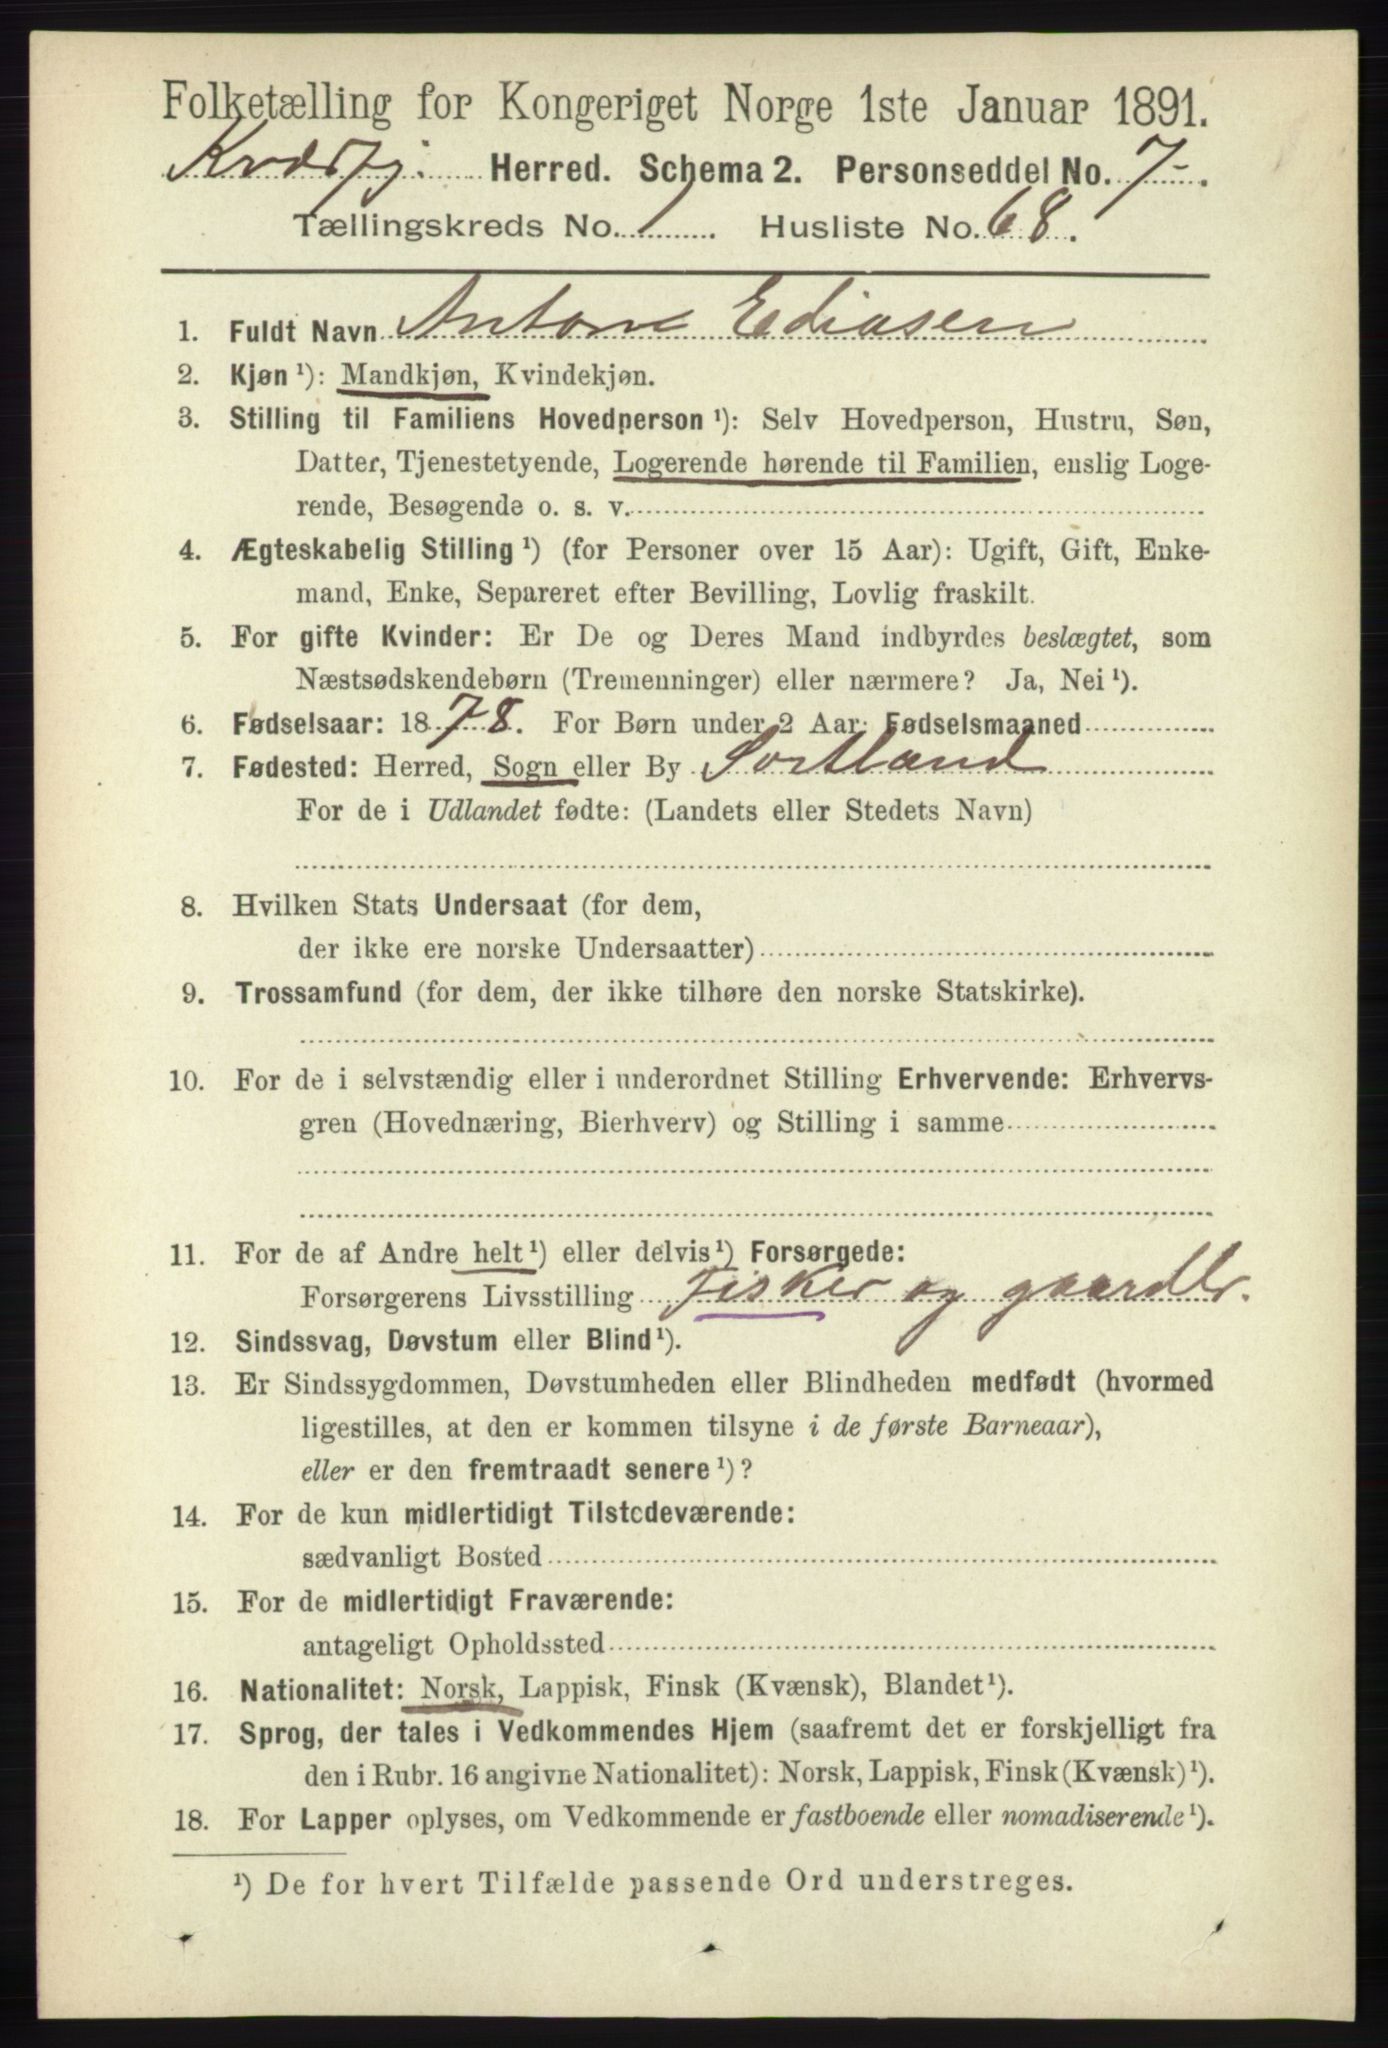 Folketælling for Kongeriget Norge 1ste Januar 1891.
Kvæfj. Herred. Schema 2. Personseddel No. 7
Tællingskreds No. 1 Husliste No. 68.
1. Fuldt Navn Anton Ediasen
2. Kjøn ¹): Mandkjøn, Kvindekjøn.
3. Stilling til Familiens Hovedperson ¹): Selv Hovedperson, Hustru, Søn,
Datter, Tjenestetyende, Logerende hørende til Familien, enslig Loge-
rende, Besøgende o. s. v.
4. Ægteskabelig Stilling ¹) (for Personer over 15 Aar): Ugift, Gift, Enke-
mand, Enke, Separeret efter Bevilling, Lovlig fraskilt.
5. For gifte Kvinder: Er De og Deres Mand indbyrdes beslægtet, som
Næstsødskendebørn (Tremenninger) eller nærmere? Ja, Nei ¹).
6. Fødselsaar: 1878. For Børn under 2 Aar: Fødselsmaaned
7. Fødested: Herred, Sogn eller By Sortland
For de i Udlandet fødte: (Landets eller Stedets Navn)
8. Hvilken Stats Undersaat (for dem,
der ikke ere norske Undersaatter)
9. Trossamfund (for dem, der ikke tilhøre den norske Statskirke).
10. For de i selvstændig eller i underordnet Stilling Erhvervende: Erhvervs-
gren (Hovednæring, Bierhverv) og Stilling i samme
11. For de af Andre helt ¹) eller delvis ¹) Forsørgede:
Forsørgerens Livsstilling Fisker og gaardbr.
12. Sindssvag, Døvstum eller Blind ¹).
13. Er Sindssygdommen, Døvstumheden eller Blindheden medfødt (hvormed
ligestilles, at den er kommen tilsyne i de første Barneaar),
eller er den fremtraadt senere ¹)?
14. For de kun midlertidigt Tilstedeværende:
sædvanligt Bosted
15. For de midlertidigt Fraværende:
antageligt Opholdssted
16. Nationalitet: Norsk, Lappisk, Finsk (Kvænsk), Blandet ¹).
17. Sprog, der tales i Vedkommendes Hjem (saafremt det er forskjelligt fra
den i Rubr. 16 angivne Nationalitet): Norsk, Lappisk, Finsk (Kvænsk) ¹).
18. For Lapper oplyses, om Vedkommende er fastboende eller nomadiserende ¹).
¹) De for hvert Tilfælde passende Ord understreges.